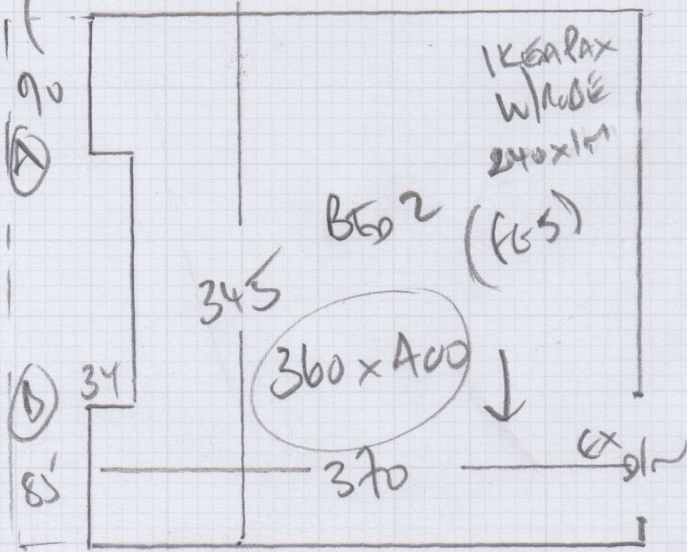 90
A
IKEA PAX
W/ROBE
240 x 1M
BED 2
345
360 x 400
34
B
85
370
EX